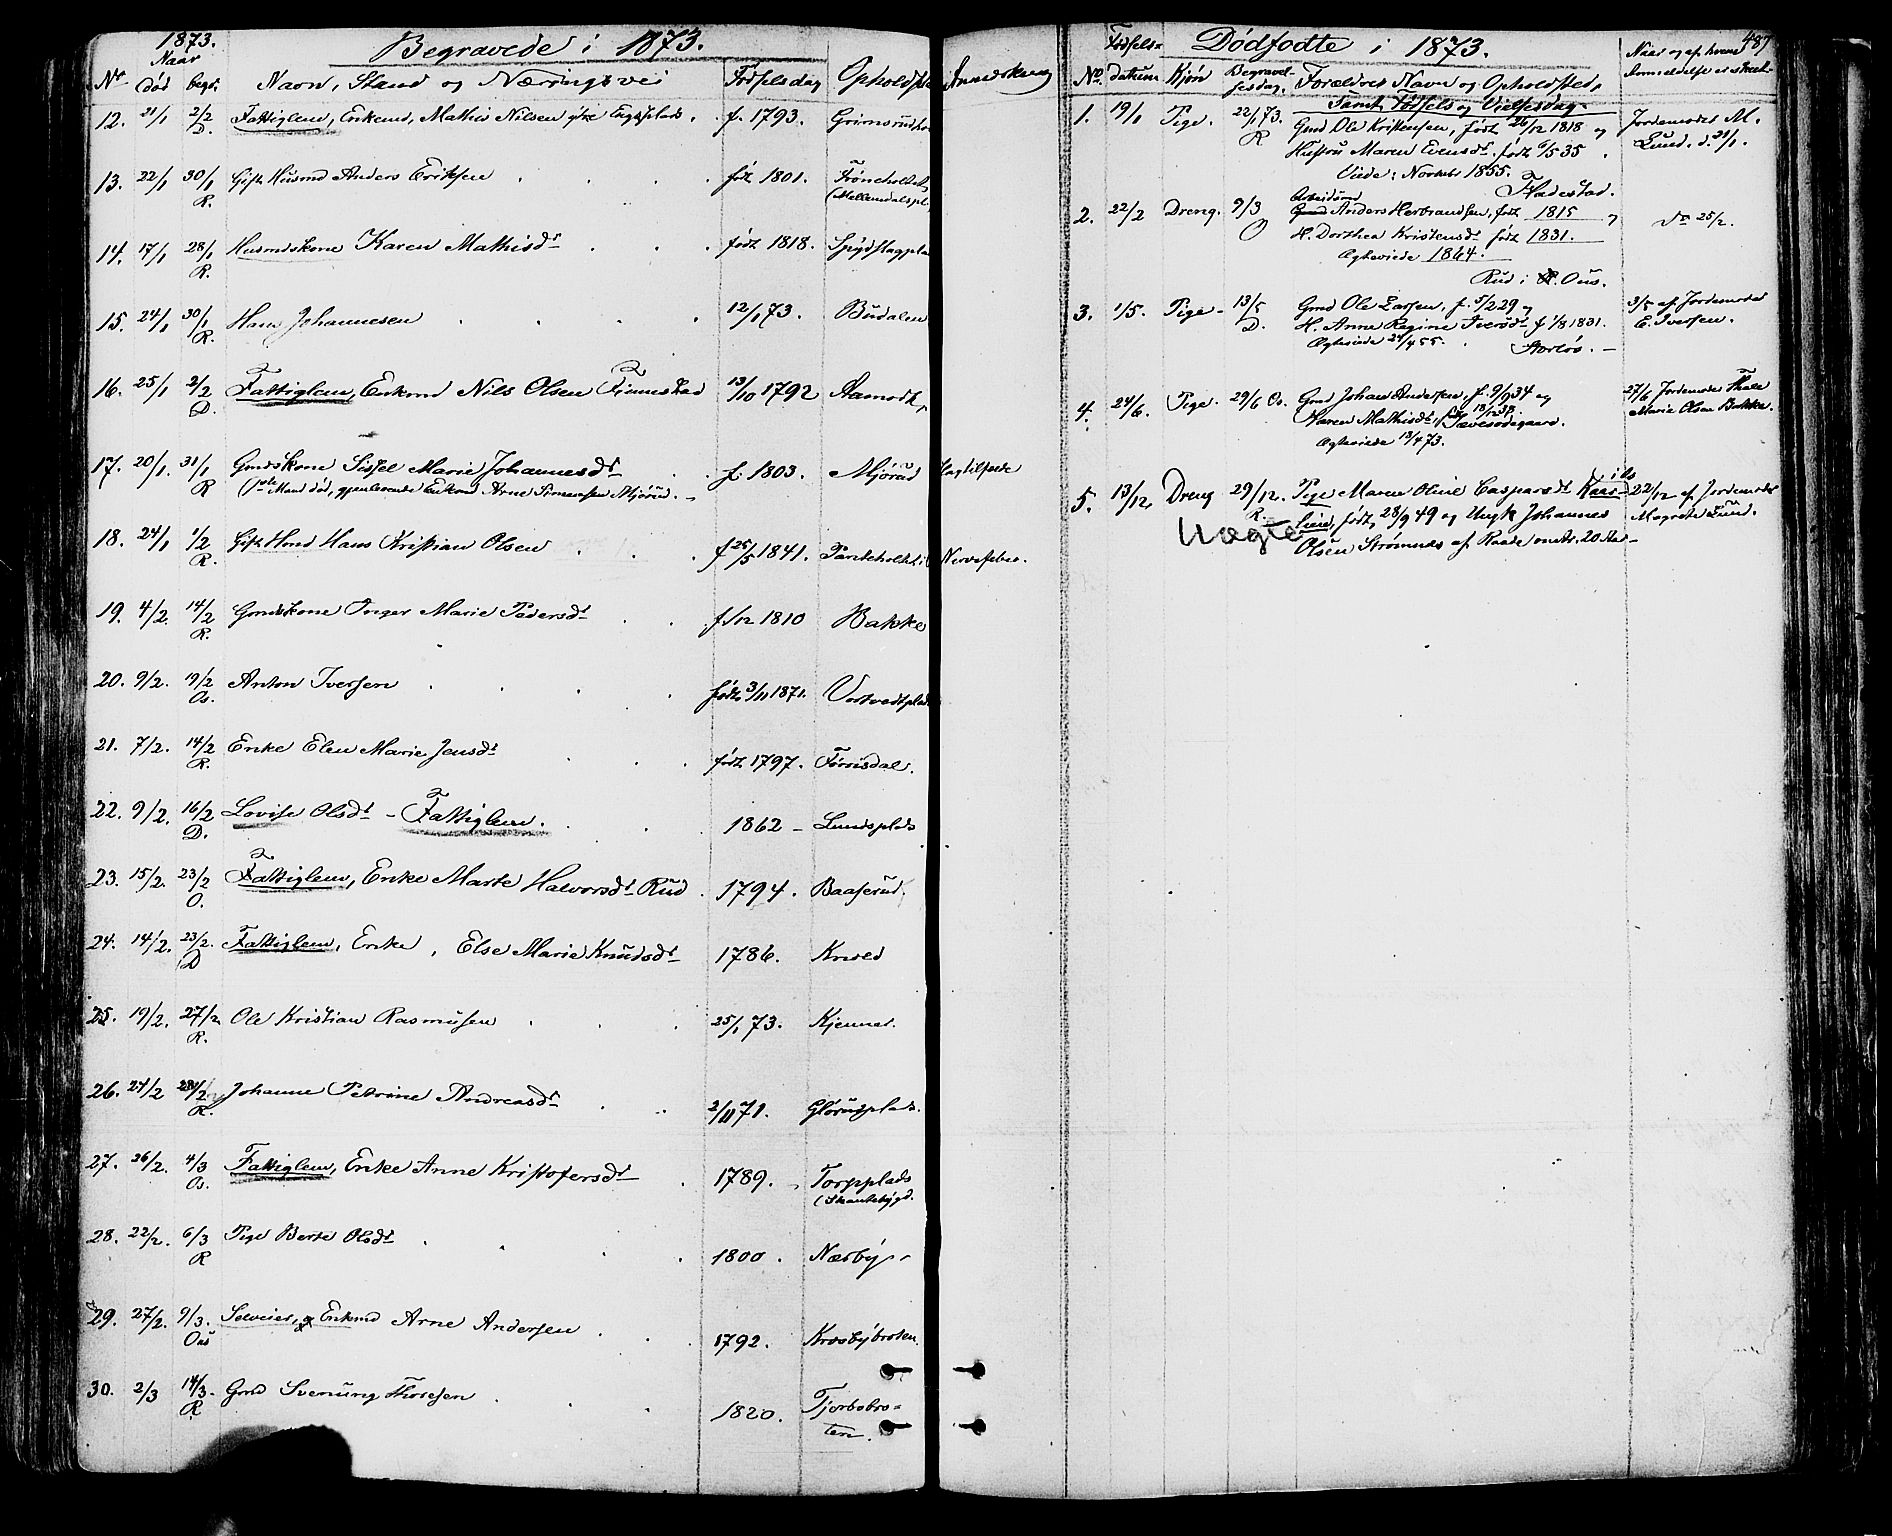 1873.
Begravede i 1873.
Naar
No død begr. Navn, Stand og Næringsvei Fødselsdag Opholdsst Anmerkning
12. 21/1 2/2 D. Fattiglem, Enkemd, Mathis Nilsen f. 1793.
13. 22/1 30/1 R. Gift Husmd Anders Eriksen født 1801. Frønehollet
(Mellemdalspl.
14. 17/1 28/1 R. Husmdskone Karen Mathisdt født 1818. Spydstagpla
15. 24/1 30/1 R. Hans Johannesen 12/1 73. Budalen
16. 25/1 2/2 D. Fattiglem, Enkemd Nils Olsen Finnestad 13/10 1792 Aamodt,
17. 20/1. 31/1 R Gmdskone Sissel Marie Johannesdt f. 1803. Mjørud
Mand død, gjenlevende Enkemd Arne Simensen Mjørud.
18. 24/1 1/2 R. Gift Hmd Hans Kristian Olsen f 25/5 1841. Nervesebro.
19. 4/2. 14/2 R. Gmdskone Inger Marie Pedersdt f 1/12 1810 Bakke
20. 9/2. 19/2 Os. Anton Iversen født 3/11 1871. Vortvedtplads
21. 7/2. 14/2 R. Enke Elen Marie Jensdt født 1797. Førrisdal.
22. 9/2. 16/2 D. Lovise Olsdt - Fattiglem. 1862 - Lundsplads
23. 15/2. 23/2 O. Fattiglem, Enke Marte Halvorsdt Rud. 1794. Baaserud.
24. 14/2. 23/2. D Fattiglem, Enke, Else Marie Knudsdt 1786. Krived
25. 19/2. 27/2 R. Ole Kristian Rasmusen 25/1 73. Kjennet.
26. 24/2 28/2 R. Johanne Petrine Andreasdt 2/11 71. Glørugplads.
27. 26/2. 4/3 Os. Fattiglem, Enke Anne Kristofersdt 1789. Torpplads
(Skantebygd.
28. 22/2. 6/3 R Pige Berte Olsdt 1800. Nærby
29. 27/2. 9/3. Ous Selveier, og Enkemd Arne Andersen 1792. Krosbybroten.
30. 2/3 14/3. R Gmd Svenung Thoresen 1820. Tjorbobro=
ten.
487
Dødfødte i 1873.
No. Fødsels= datum Kjøn Begravel- sesdag. Forældres Navn og Opholdsted,
Samt Fødsels og Vielsesdag.
Naar og af hvem
Anmeldelse er skeet.
1. 19/1 Pige. 22/1 73. R Gmd Ole Kristensen, født 26/12 1818 og
Hustru Maren Evensdt. født 6/5 35.
Viede: Novbr 1855.
Fladestad.
Jordemoder M.
Lund. d. 21/1.
2. 22/2 Dreng. 9/3 O Arbeidsmd
Anders Herbrandsen, født 1815 og
H. Dorthea Kristensdt født 1831.
Ægteviede 1864.
Rud i Ous.
Do 25/2.
3. 1/5. Pige - 13/5 D. Gmd Ole Larsen, f. 5/2 29 og
H. Anne Regine Iversdt f 1/8 1831.
Ægteviede 24/4 55.
3/5 af Jordemoder
E. Iversen.
4. 24/6. Pige. 29/6 Os. Gmd Johan Andersen, f. 9/9 34 og
Karen Mathisdt,
Ægteviede 13/4 73.
27/6 Jordemoder Thale
Marie Olsen Bakke.
5. 13/12, Dreng 29/12. R. Pige Maren Oline Caspersdt
født 28/9 49 og Ungk Johannes
Olsen Strømnes af Raade
22/12 af Jordemoder
Magrete Lund.
Uægte